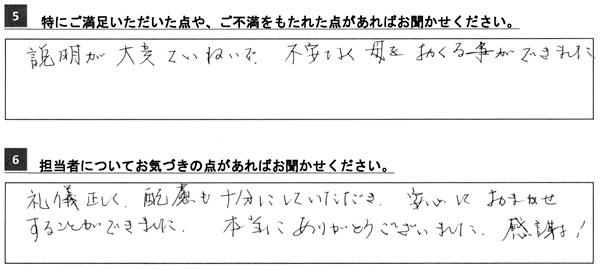 5 特にご満足いただいた点や、ご不満をもたれた点があればお聞かせください。
説明が大変ていねいで、不安なく母をおくる事ができました
6 担当者についてお気づきの点があればお聞かせください。
礼儀正しく、配慮も十分にしていただき、安心しておまかせ
することができました。本当にありがとうございました。感謝!